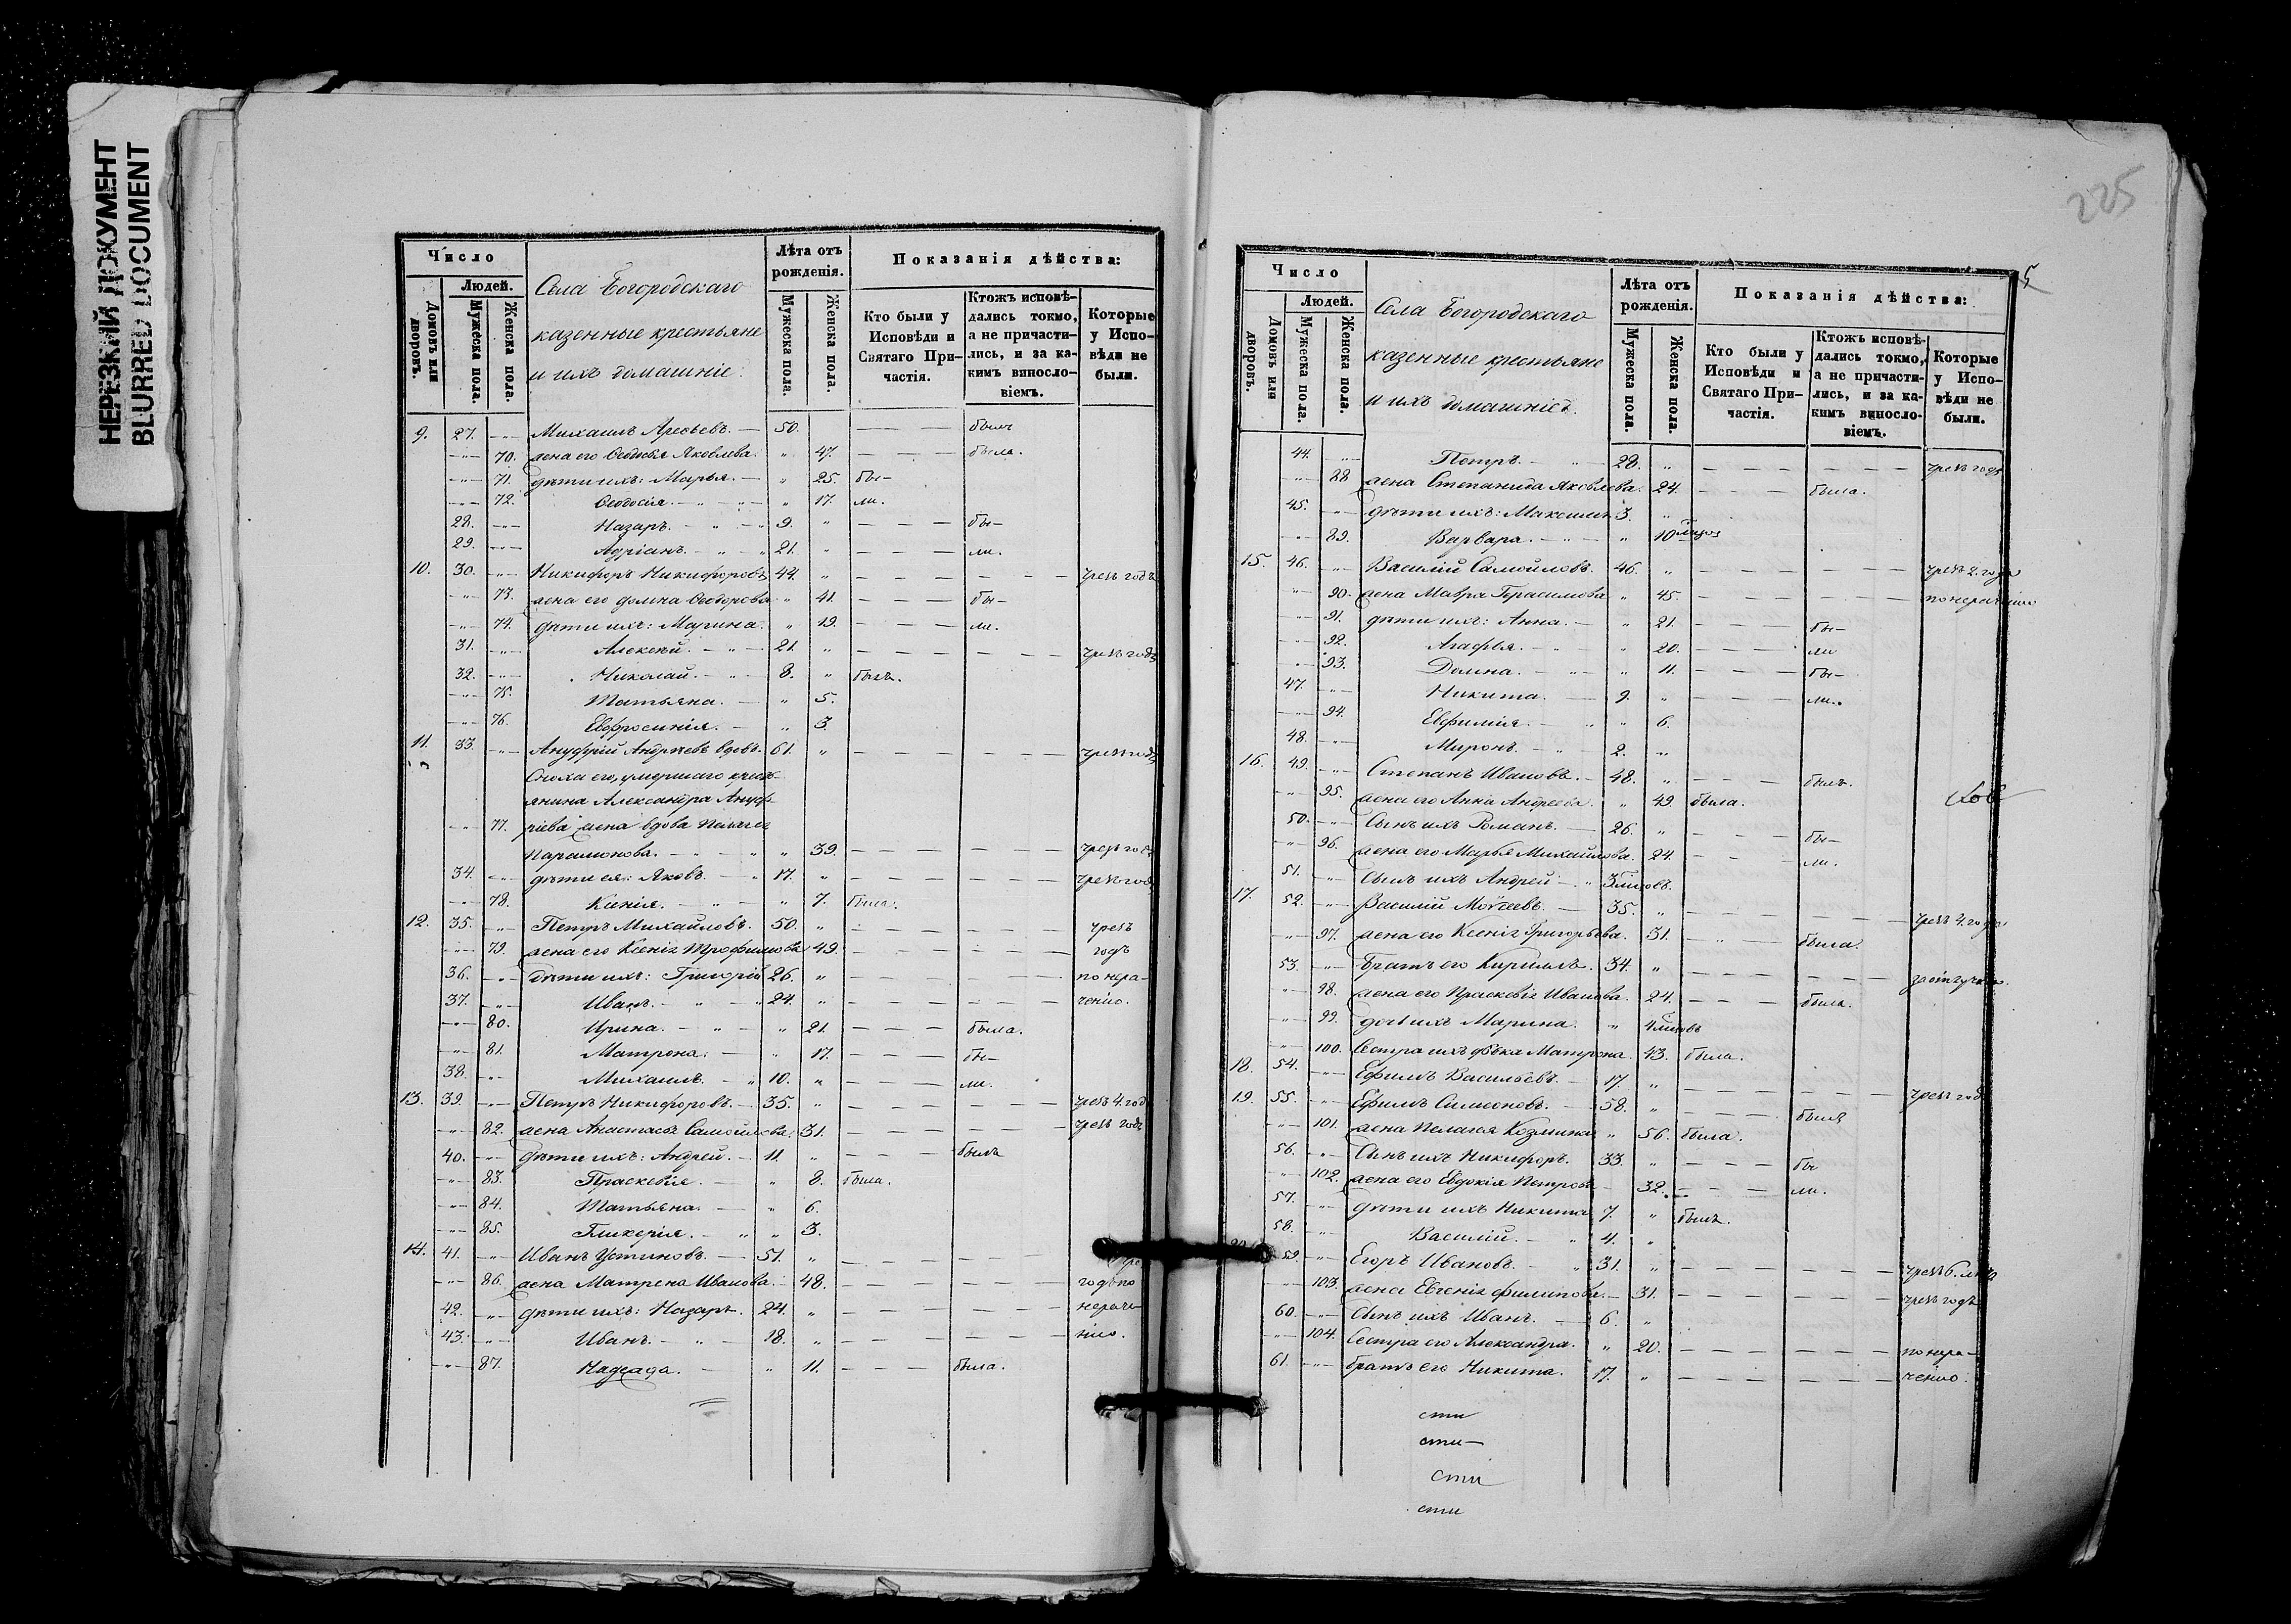 НЕРЕЗКИЙ ДОКУМЕНТ
BLURRED DOCUMENT
Число
Людей.
Домовъ или дворовъ.
Мужеска пола.
Женска пола.
Села Богородскаго
казенные крестьяне
и ихъ домашніе.
Лѣта отъ рожденія.
Мужеска пола.
Женска пола.
Показанія дѣйства:
Кто были у Исповѣди и Святаго Причастія.
Ктожъ исповѣдались токмо, а не причастились, и за какимъ винословіемъ.
Которые у Исповѣди не были.
9. 27. -"- Михаилъ Арсѣевъ. — 50. — — былъ
-"- 70. жена его Ѳеодосія Яковлева. " 47. — — — была.
-"- 71. дѣти ихъ: Марья. — " 25. бы-
-"- 72. Ѳеодосія. — " 17. ли.
28. -"- Назаръ. — " 9. " — — — бы-
29. -"- Адріанъ. — " 21. " — — — ли.
10. 30. -"- Никифоръ Никифоровъ 44. " — — — — — — чрезъ годъ
-"- 73. жена его Домна Ѳеодорова " 41. — — — бы-
-"- 74. дѣти ихъ: Марина. " 19. — — — ли.
31. -"- Алексѣй. — " 21. " — — — — — — чрезъ годъ
32. -"- Николай. — " 8. " былъ.
-"- 75. Татьяна. — " 5.
-"- 76. Евфросинія. — " 3.
11. 33. -"- Ануфрій Андреевъ вдовъ. 61. " — — — — — — чрезъ годъ
Сноха его, умершаго кресть
янина Александра Ануф
-"- 77. ріева жена вдова Пелагея
Парамонова. — " " 39. — — — — — — чрезъ годъ
34. -"- дѣти ея: Яковъ. — " 17. " — — — — — — чрезъ годъ
-"- 78. Ксенія. — " " 7. была.
12. 35. -"- Петръ Михайловъ. 50. " — — — — — — чрезъ
-"- 79. жена его Ксенія Трофимова 49. — — — — — — годъ
36. -"- дѣти ихъ: Григорій 26. " — — — — — — по нера-
37. -"- Иванъ. — " — " 24. " — — — — — — ченію.
-"- 80. Ирина. — " — " 21. — — — была.
-"- 81. Матрона. — " 17. — — — бы-
38. -"- Михаилъ. — " 10. " — — — ли.
13. 39. -"- Петръ Никифоровъ. — 35. " — — — — — — чрезъ 4. год
-"- 82. жена Анастасія Самойлова. 31. — — — — — — чрезъ годъ
40. -"- дѣти ихъ: Андрей. — 11. " — — — былъ
-"- 83. Праскевія. — " 8. была.
-"- 84. Татьяна. — " 6.
-"- 85. Гликерія. — " " 3.
14. 41. -"- Иванъ Устиновъ. — 51. " — — — — —
-"- 86. жена Матрена Иванова. — 48. — — — — — — годъ по
42. -"- дѣти ихъ: Назаръ. 24. " — — — — — — нераче-
43. -"- Иванъ. — " — 18. " — — — — — — нію.
-"- 87. Надежда. — " 11. — — — была.
225
5
Число
Людей.
Домовъ или дворовъ.
Мужеска пола.
Женска пола.
Села Богородскаго
казенные крестьяне
и ихъ домашніе.
Лѣта отъ рожденія.
Мужеска пола.
Женска пола.
Показанія дѣйства:
Кто были у Исповѣди и Святаго Причастія.
Ктожъ исповѣдались токмо, а не причастились, и за какимъ винословіемъ.
Которые у Исповѣди не были.
44. -"- Петръ. — " — 28. " — — — — — — чрезъ годъ
-"- 88 жена Степанида Яковлева. 24. — — — была.
45. -"- дѣти ихъ: Максимъ 3. "
-"- 89. Варвара. — " — " 10
15. 46. -"- Василій Самойловъ. 46. " — — — — — — чрезъ 2. года
-"- 90. жена Мавра Герасимова " 45. — — — — — — по нераченію
-"- 91. дѣти ихъ: Анна. — " 21. — — — бы-
-"- 92. Агафья. — " " 20. — — — ли
-"- 93. Домна. — " — " 11. — — — бы-
47. -"- Никита. — 9. " — — — ли.
-"- 94. Евфимія. — " " 6.
48. -"- Миронъ. — " — 2. "
16. 49. -"- Степанъ Ивановъ. — 48. " — — — былъ.
-"- 95. жена его Анна Андреева. " 49. была.
50. -"- Сынъ ихъ Романъ. — 26. " — — — бы-
-"- 96. жена его Марья Михайлова. 24. — — — ли.
51. -"- Сынъ ихъ Андрей — "
17. 52. -"- Василій Моѵсеевъ. — 35. " — — — — — — чрезъ 4. года
-"- 97. жена его Ксенія Григорьева. 31. — " — была.
53. -"- Братъ его Кириллъ. 34. " — — — — — —
-"- 98. жена его Праскевія Иванова. 24. — — — была.
-"- 99. дочь ихъ Марина. "
-"- 100. Сестра ихъ дѣвка Матрона. 43. была.
18. 54. -"- Ефимъ Васильевъ. — 17. " — — — — — — чрезъ год
19. 55. -"- Ефимъ Симеоновъ. — 58. " — — — былъ
-"- 101. жена Пелагея Козмина " 56. была.
56. -"- Сынъ ихъ Никифоръ. 33. " — — — бы
-"- 102. жена его Евдокія Петрова 32. — — — ли.
57. -"- дѣти ихъ Никита 7. " былъ.
58. -"- Василій. — " 4. "
59. -"- Егоръ Ивановъ. — " 31. " — — — — — — чрезъ 6. лѣтъ
-"- 103. жена Евгенія Филипова. — 31. — — — — — — чрезъ годъ
60. -"- Сынъ ихъ Иванъ. — 6. "
-"- 104. Сестра его Александра. " 20. — — — — — — по нера-
61. -"- братъ его Никита. 17. " — — — — — — ченію.
сти
сти—
сти
сти